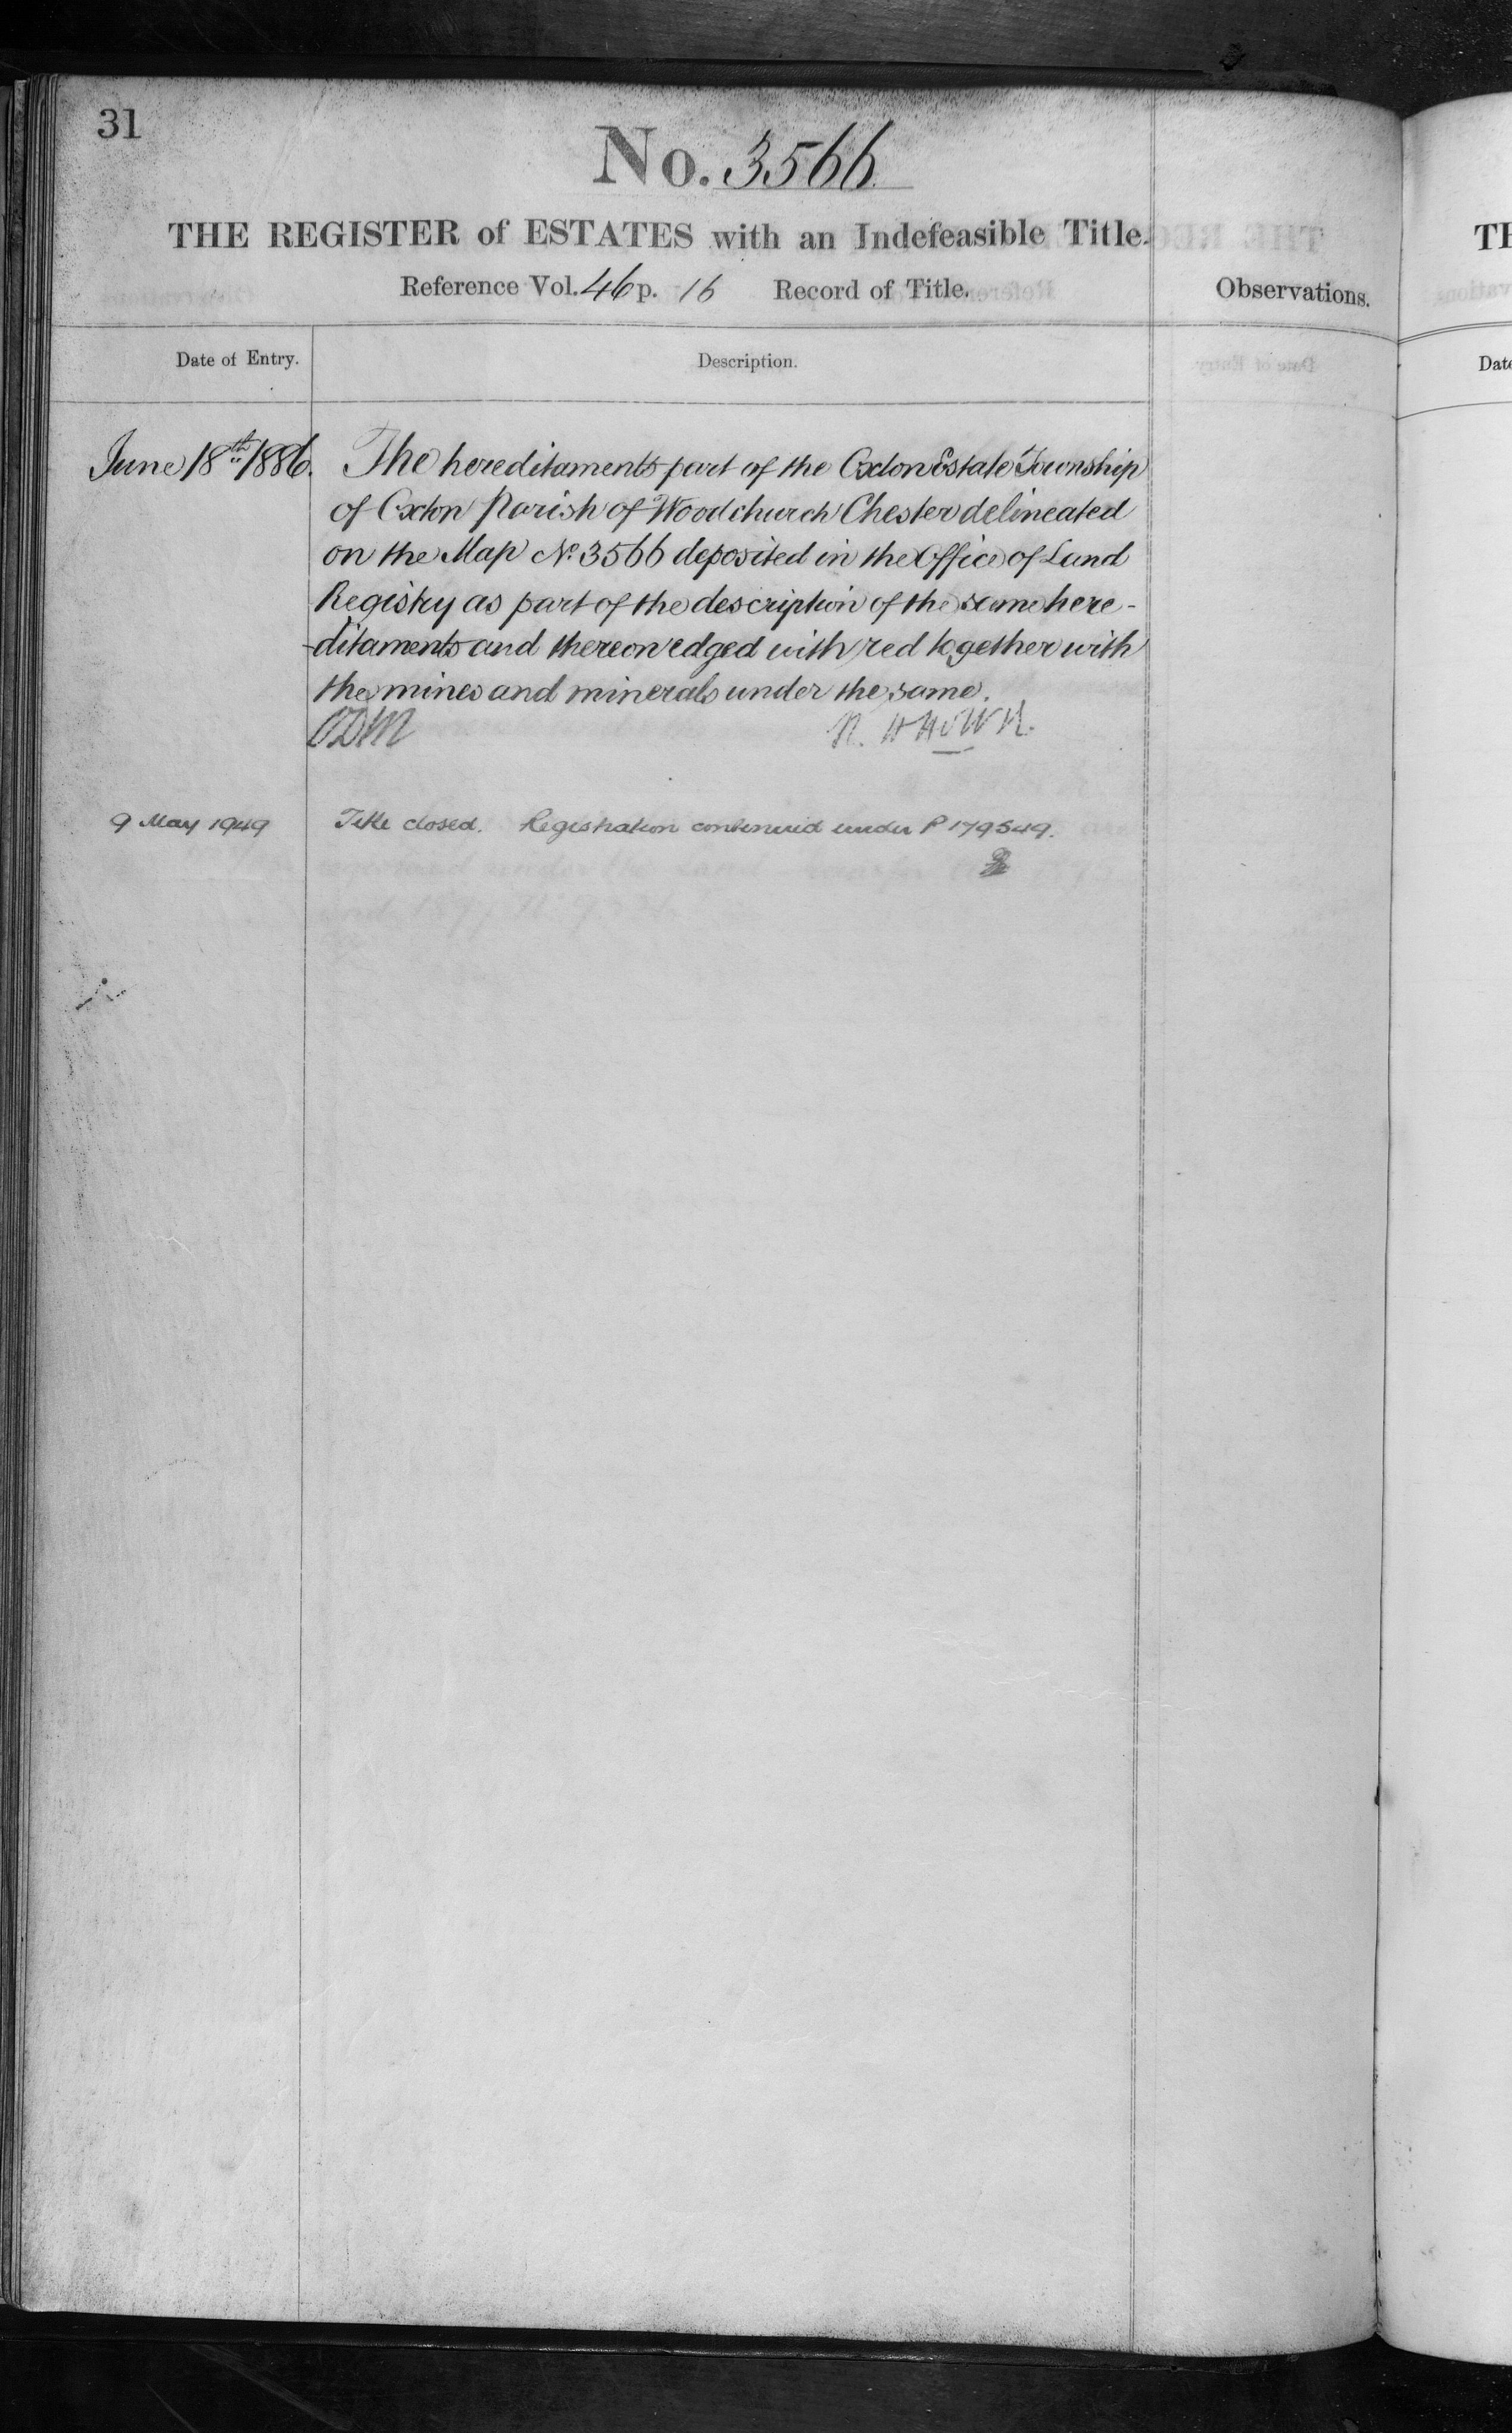 31
No. 3566
THE REGISTER of ESTATES with an Indefeasible Title.
Reference Vol. 46 p. 16 Record of Title.
Observations.
Date of Entry.
Description.
June 18th 1886. The hereditaments part of the Oxton Estate Township
of Oxton Parish of Woodchurch Chester delineated
on the Map No. 3566 deposited in the Office of Land
Registry as part of the description of the same here-
ditaments and thereon edged with red together with
the mines and minerals under the same.
9 May 1949 Title closed. Registration continued under P 179549.
TH
Date